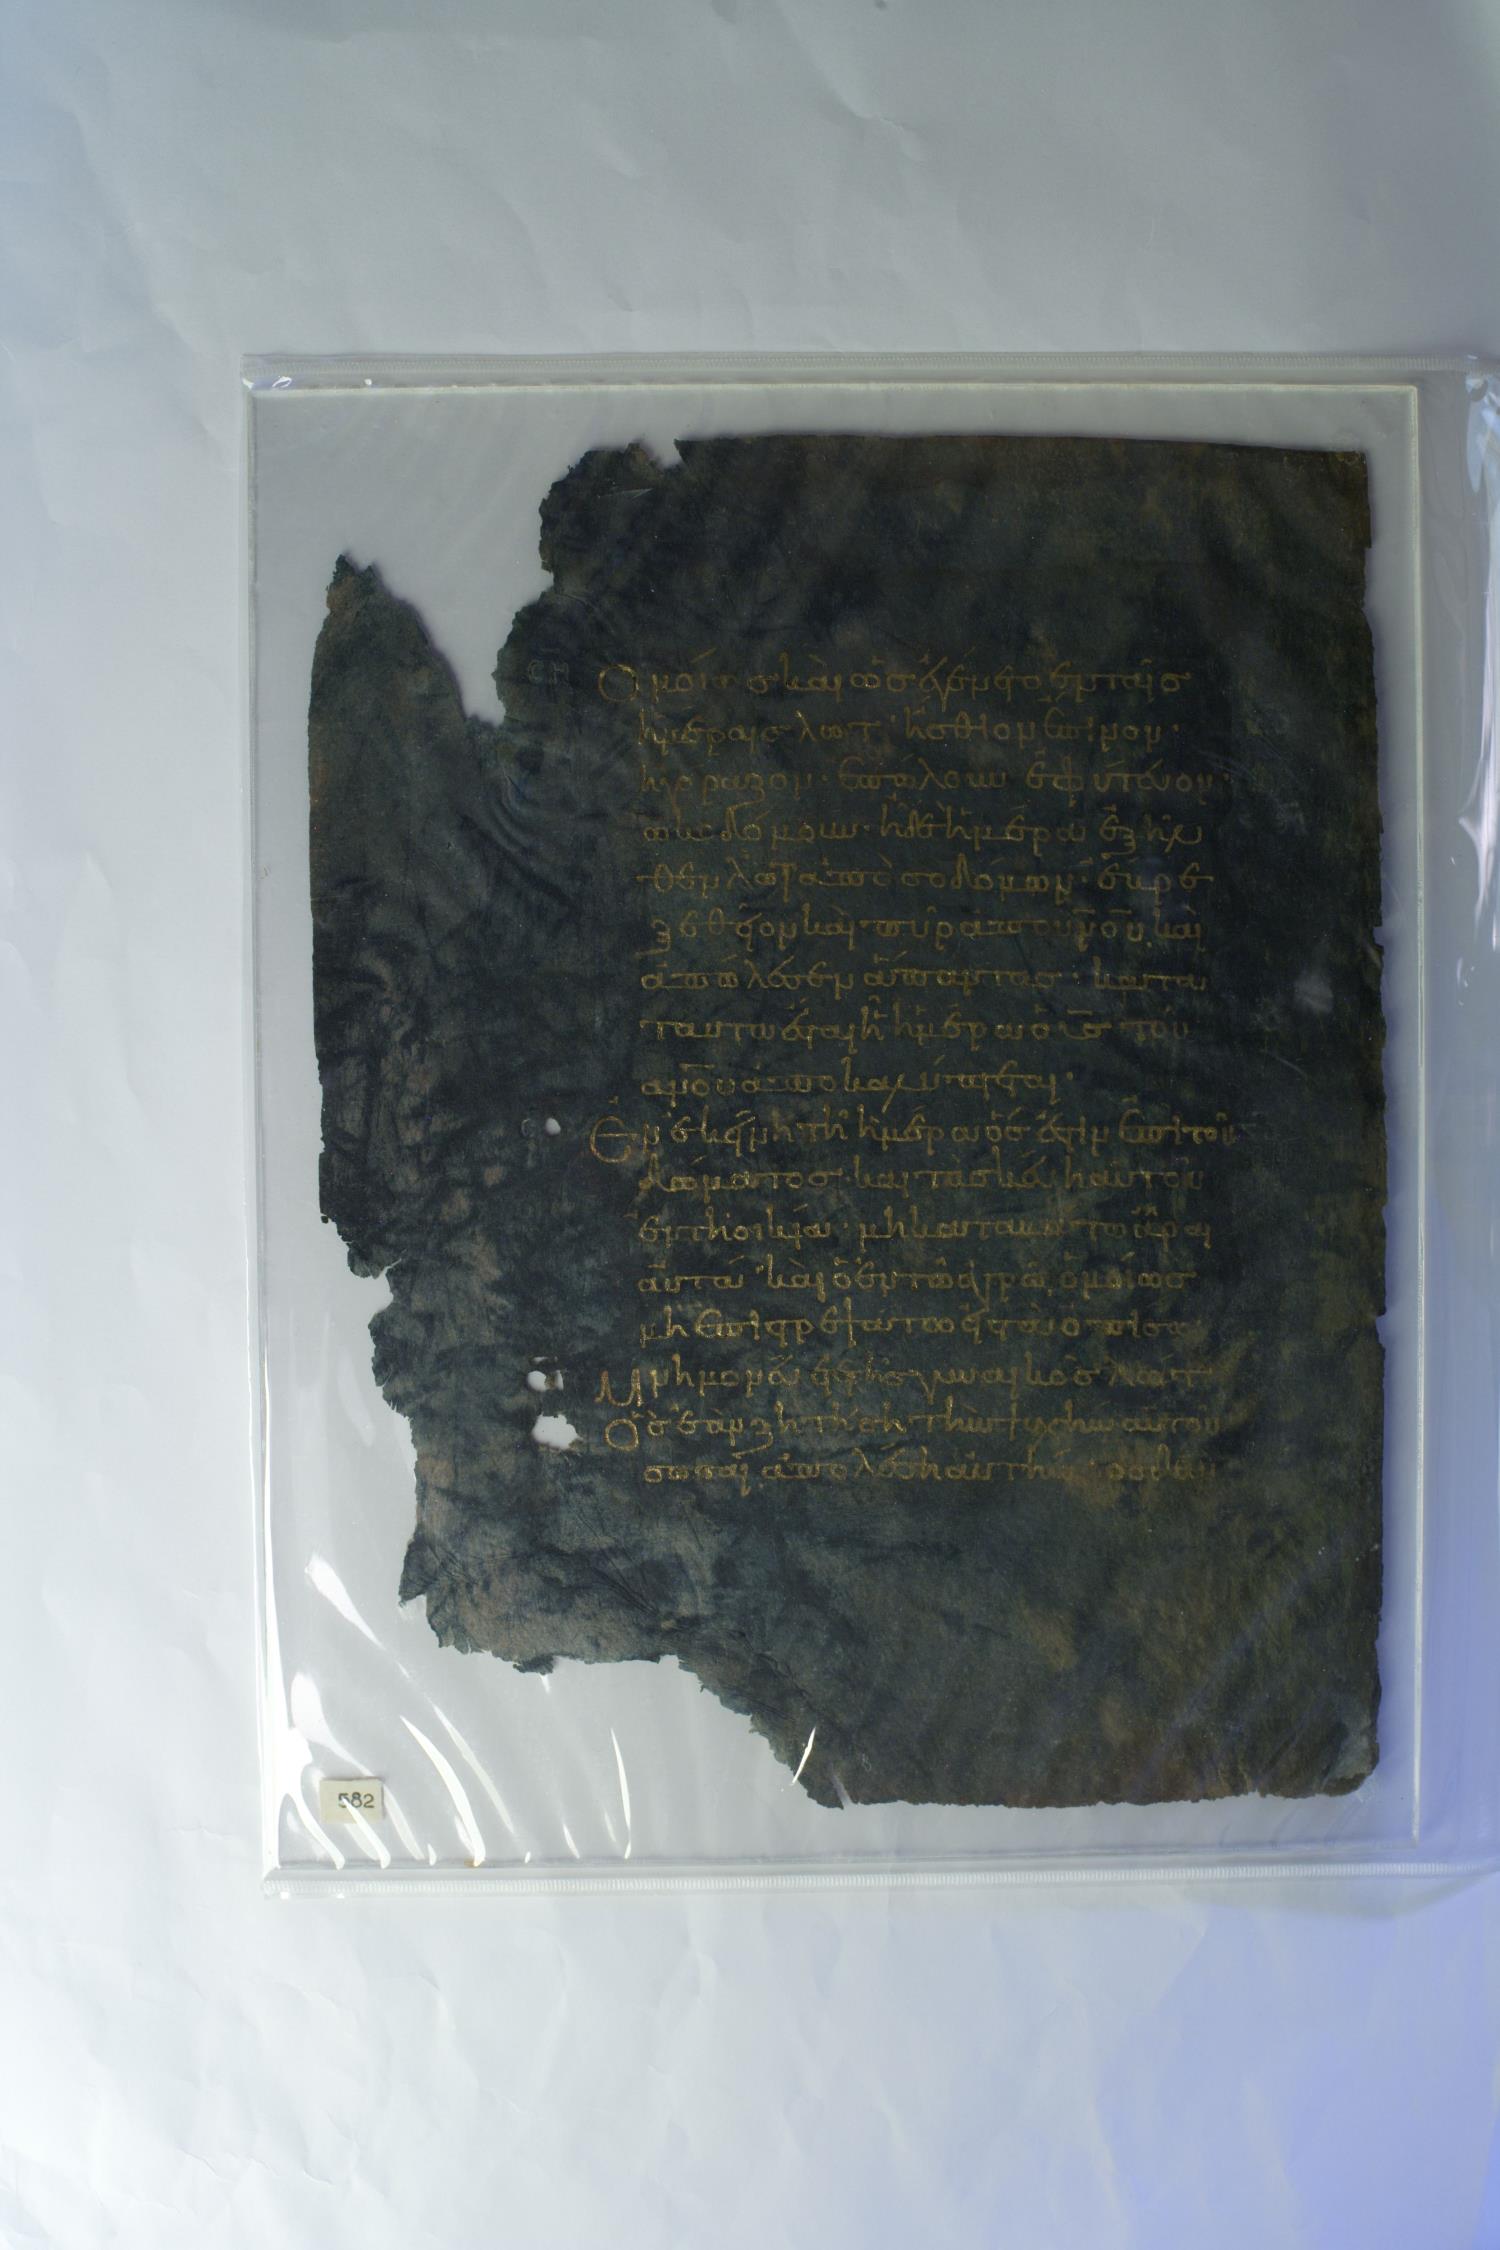 ση Ὁμοίως καὶ ὡς ἐγένετο ἐν ταῖς
ἡμέραις λωτ· ἤσθιον ἔπινον·
ἠγόραζον· ἐπώλουν ἐφύτευον·
ὠκοδόμουν· ἡ δὲ ἡμέρα ἐξῆλ
θεν λὼτ ἀπὸ σοδόμων· ἔβρε
ξε θεῖον καὶ πῦρ ἀπ οὐνοῦ καὶ
ἀπώλεσεν ἅπαντας· κατὰ
ταυτὰ ἔσται ἡ ἡμέρα ὁ ισ τοῦ
ανου ἀποκαλύπτεται·
Ἐν ἐκείνη τῆ ἡμέρα ὃς ἔσται ἐπὶ τοῦ
δώματος· καὶ τὰ σκεύη αὐτοῦ
ἐν τῆ οἰκία· μὴ καταβάτω ἆραι
αὐτά· καὶ ὁ ἐν τῶ ἀγρῶ ὁμοίως
μὴ ἐπιστρεψάτω εἰς τὰ ὀπίσω·
Μνημονεύετε τῆς γυναικὸς λώτ
Ὃς ἐὰν ζητήση τὴν ψυχὴν αὐτοῦ
σῶσαι ἀπολέσει αὐτήν· ὃς δ ἂν
582